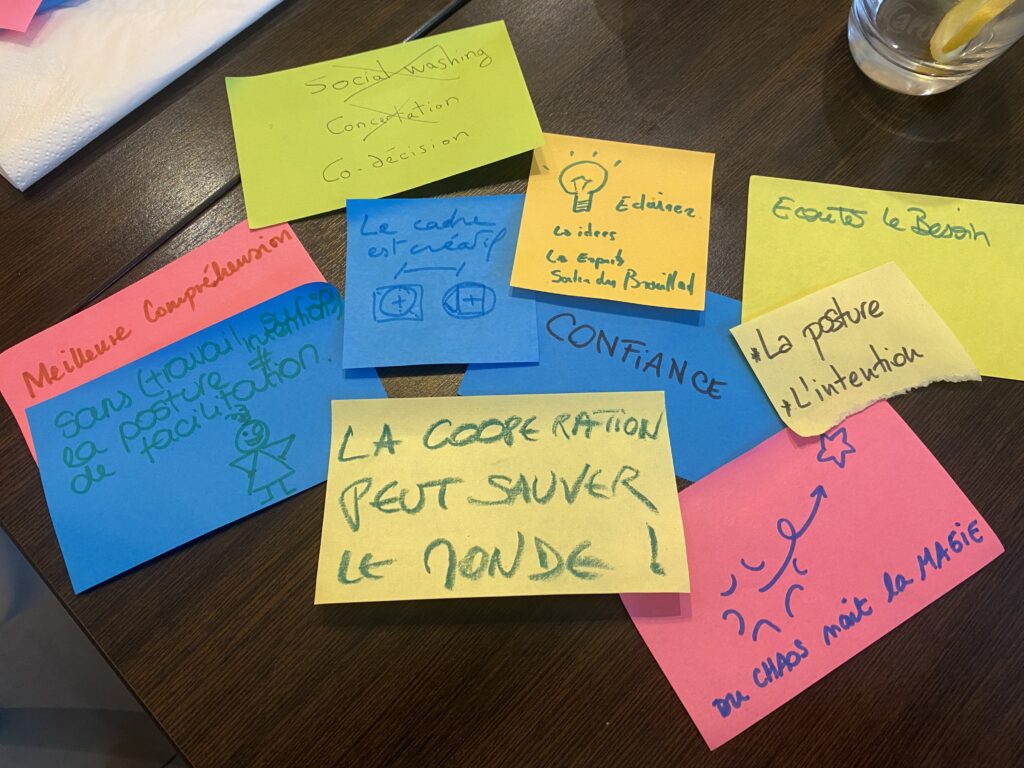 Social washing
Concertation
Co-décision
Le cadre
est créatif
Eclairer
Les idées
Les Esprits
Sortir du Brouillard
Ecouter le Besoin
Meilleure Compréhension
sans (travail intérieur)
la posture #
de facilitation
CONFIANCE
*La posture
*L'intention
LA COOPERATION
PEUT SAUVER
LE MONDE !
DU CHAOS nait la MAGIE